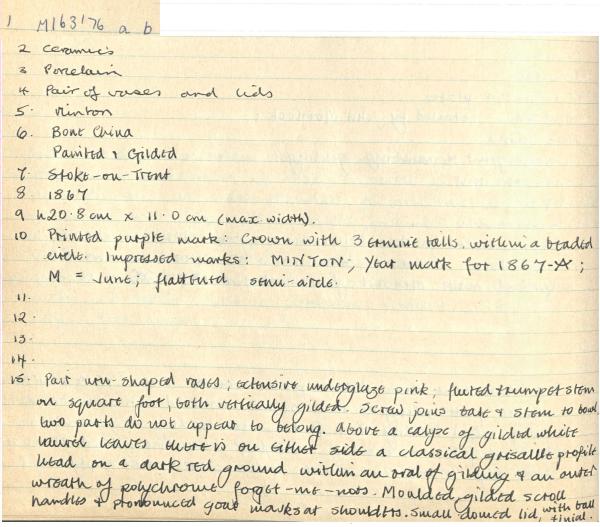 1 M163'76 a b
2 Ceramics
3 Porcelain
4 Pair of vases and lids
5. Minton
6. Bone China
Painted & Gilded
7. Stoke-on-Trent
8 1867
9 h20.8cm x 11.0cm (max width).
10 Printed purple mark: Crown with 3 ermine tails, within a beaded
circle. Impressed marks: MINTON; Year mark for 1867-;
M = June; flattened semi-circle.
11.
12.
13.
14.
15. Pair urn-shaped vases; extensive underglaze pink; fluted trumpet stem
on square foot, both vertically gilded. Screw joins base & stem to bowl,
two parts do not appear to belong. Above a calyx of gilded white
laurel leaves there is on either side a classical grisaille profile
head on a dark red ground within an oval of gilding & an outer
wreath of polychrome forget-me-nots. Moulded, gilded scroll
handles & pronounced goat masks at shoulders. Small domed lid, with ball
finial.